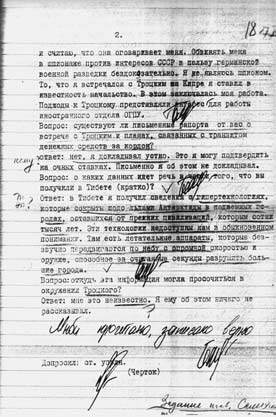 2.
и считаю, что она оговаривает меня. Обвинять меня
в шпионаже против интересов СССР в пользу германской
военной разведки бездоказательно. Я не являлся шпионом.
То, что я встречался с Троцким на Кипре я ставил в
известность начальство. В этом заключалась моя работа.
Подходы к Троцкому представляли интерес для работы
иностранного отдела ОГПУ.
Вопрос: существуют ли письменные рапорта от вас о
встрече с Троцким и планах, связанных с транзитом
денежных средств за кордон?
Ответ: нет, я докладывал устно. Это я могу подтвердить
на очных ставках. Письменно я об этом не докладывал.
Вопрос: о каких данных идет речь и того, что вы
получили в Тибете (кратко)?
Ответ: в Тибете я получил сведения о гипертехнологиях,
которые сокрыты под льдами Антарктиды в подземных го-
родах, оставшихся от прежних цивилизаций, которым сотни
тысяч лет. Эти технологии недоступны нам в обыкновенном
понимании. Там есть летательные аппараты, которые без-
звучно передвигаются по небу с огромной скоростью и
оружие, способное за считанные секунды разрушить боль-
шие города.
Вопрос: откуда эта информация могла просочиться в
окружении Троцкого?
Ответ: мне это неизвестно. Я ему об этом ничего не
рассказывал.
Мной прочитано, записано верно
Допросил: ст.
(Черток)